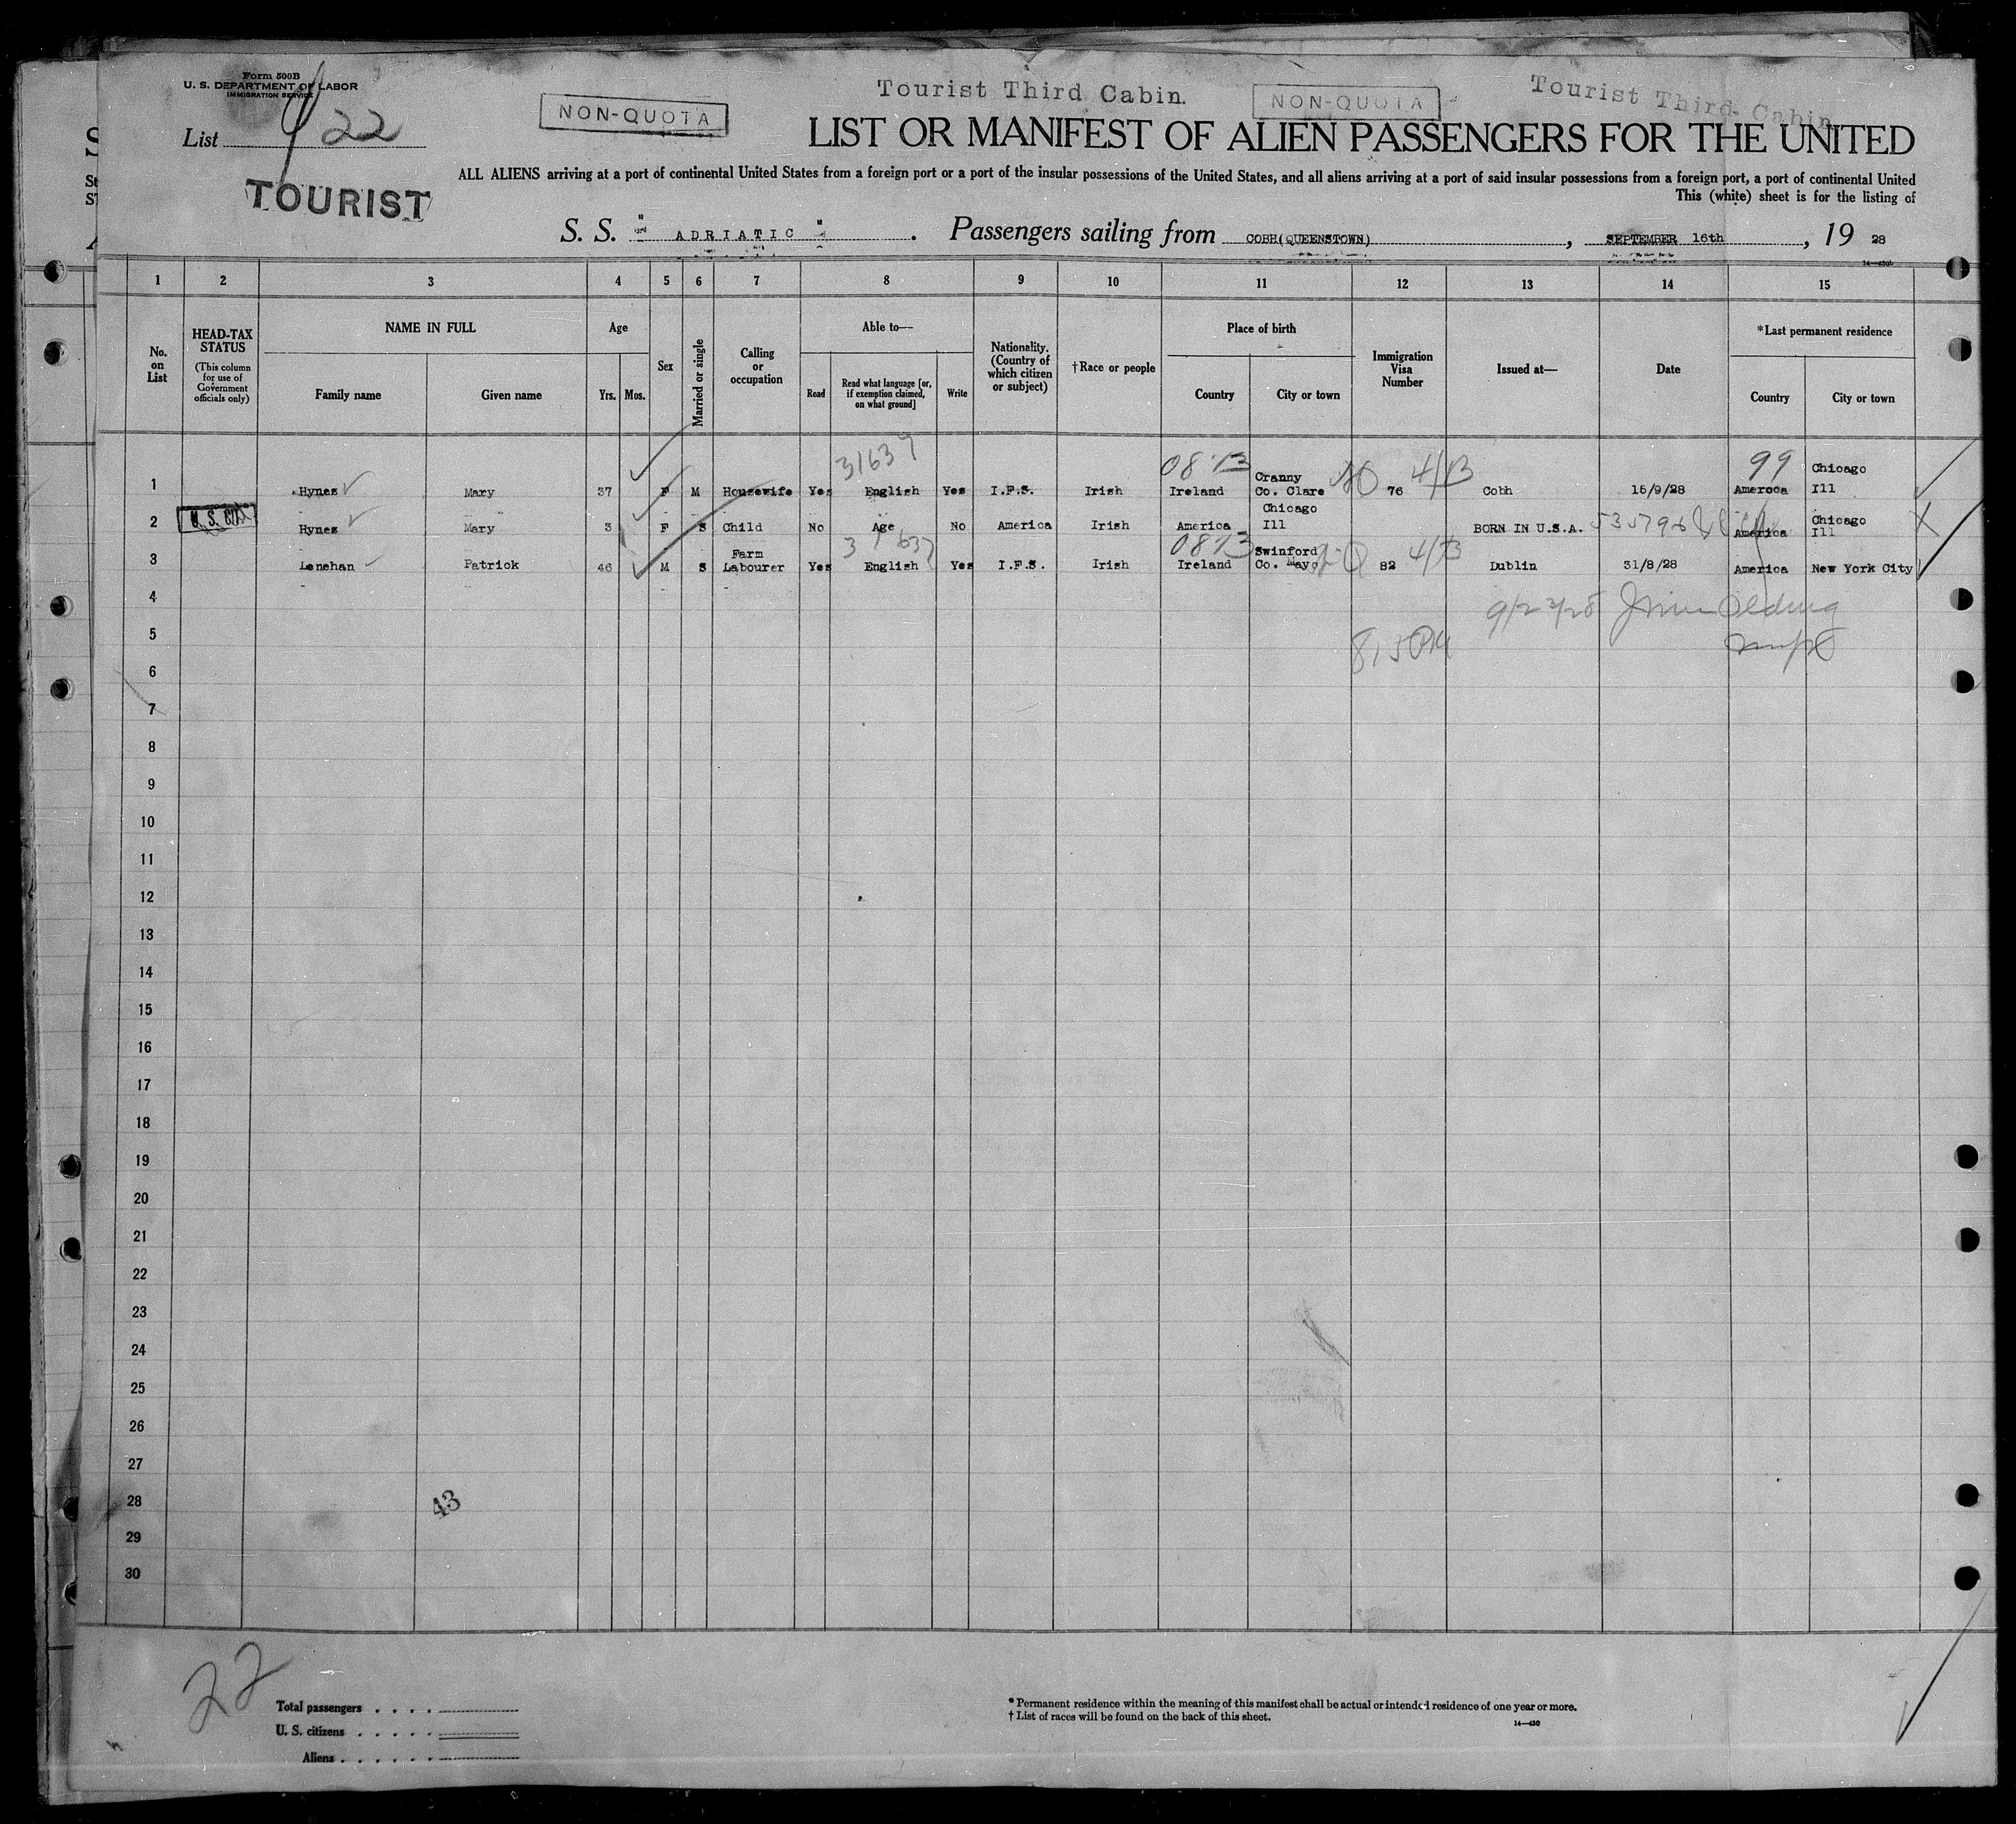 Form 500B
U. S. DEPARTMENT OF LABOR
IMMIGRATION SERVICE
List 22
TOURIST
NON-QUOTA
Tourist Third Cabin.
NON-QUOTA
Tourist Third Cabin
LIST OR MANIFEST OF ALIEN PASSENGERS FOR THE UNITED
ALL ALIENS arriving at a port of continental United States from a foreign port or a port of the insular possessions of the United States, and all aliens arriving at a port of said insular possessions from a foreign port, a port of continental United
This (white) sheet is for the listing of
S. S. " ADRIATIC " . Passengers sailing from COBH(QUEENSTOWN) , SEPTEMBER 16th , 19 28
1 2 3 4 5 6 7 8 9 10 11 12 13 14 15
No. on List
HEAD-TAX STATUS
(This column for use of Government officials only)
NAME IN FULL
Family name Given name
Age
Yrs. Mos.
Sex
Married or single
Calling or occupation
Able to—
Read Read what language [or, if exemption claimed, on what ground] Write
Nationality. (Country of which citizen or subject)
†Race or people
Place of birth
Country City or town
Immigration Visa Number
Issued at—
Date
*Last permanent residence
Country City or town
31637 99
1 Hynes Mary 37 F M Housewife Yes English Yes I.F.S. Irish Ireland Cranny Co. Clare 76 Cobh 15/9/28 Ameroca Chicago Ill
2 U. S. CIT. Hynes Mary 3 F S Child No Age No America Irish America Chicago Ill BORN IN U.S.A. 535796 America Chicago Ill
3 Lenehan Patrick 46 M S Farm Labourer Yes English Yes I.F.S. Irish Ireland Swinford Co. Mayo 82 Dublin 31/8/28 America New York City
4
5
6
7
8
9
10
11
12
13
14
15
16
17
18
19
20
21
22
23
24
25
26
27
28
29
30
43
22
Total passengers
U. S. citizens
Aliens
* Permanent residence within the meaning of this manifest shall be actual or intended residence of one year or more.
† List of races will be found on the back of this sheet.
14—430